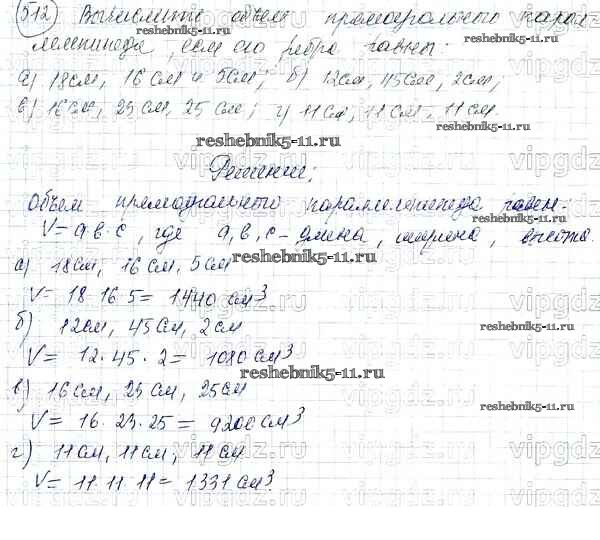 512 Вычислите объем прямоугольного парал
лелепипеда, если его ребра равны:
а) 18см, 16 см и 5см; б) 12см, 45см, 2см;
в) 16см, 23 см, 25 см; г) 11 см, 11 см, 11 см.
reshebnik5-11.ru
Решение:
Объем прямоугольного параллелепипеда равен:
V= a b · c, где a, b, c - длина, ширина, высота.
а) 18см, 16 см, 5 см
V= 18 16 5= 1440 см³
б) 12см, 45 см, 2 см
V= 12 · 45 · 2 = 1080 см³
в) 16 см, 23 см, 25см
V= 16 · 23 · 25 = 9200 см³
г) 11 см, 11 см, 11 см
V= 11 · 11 · 11 = 1331 см³.
reshebnik5-11.ru
reshebnik5-11.ru
reshebnik5-11.ru
vipgdz.ru